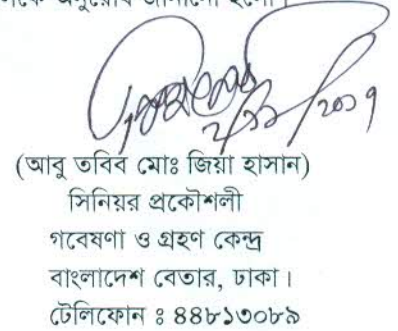 অনুরোধ জানানো হলো।
(আবু তবিব মোঃ জিয়া হাসান)
সিনিয়র প্রকৌশলী
গবেষণা ও গ্রহণ কেন্দ্র
বাংলাদেশ বেতার, ঢাকা।
টেলিফোন ঃ ৪৪৮১৩০৮৯